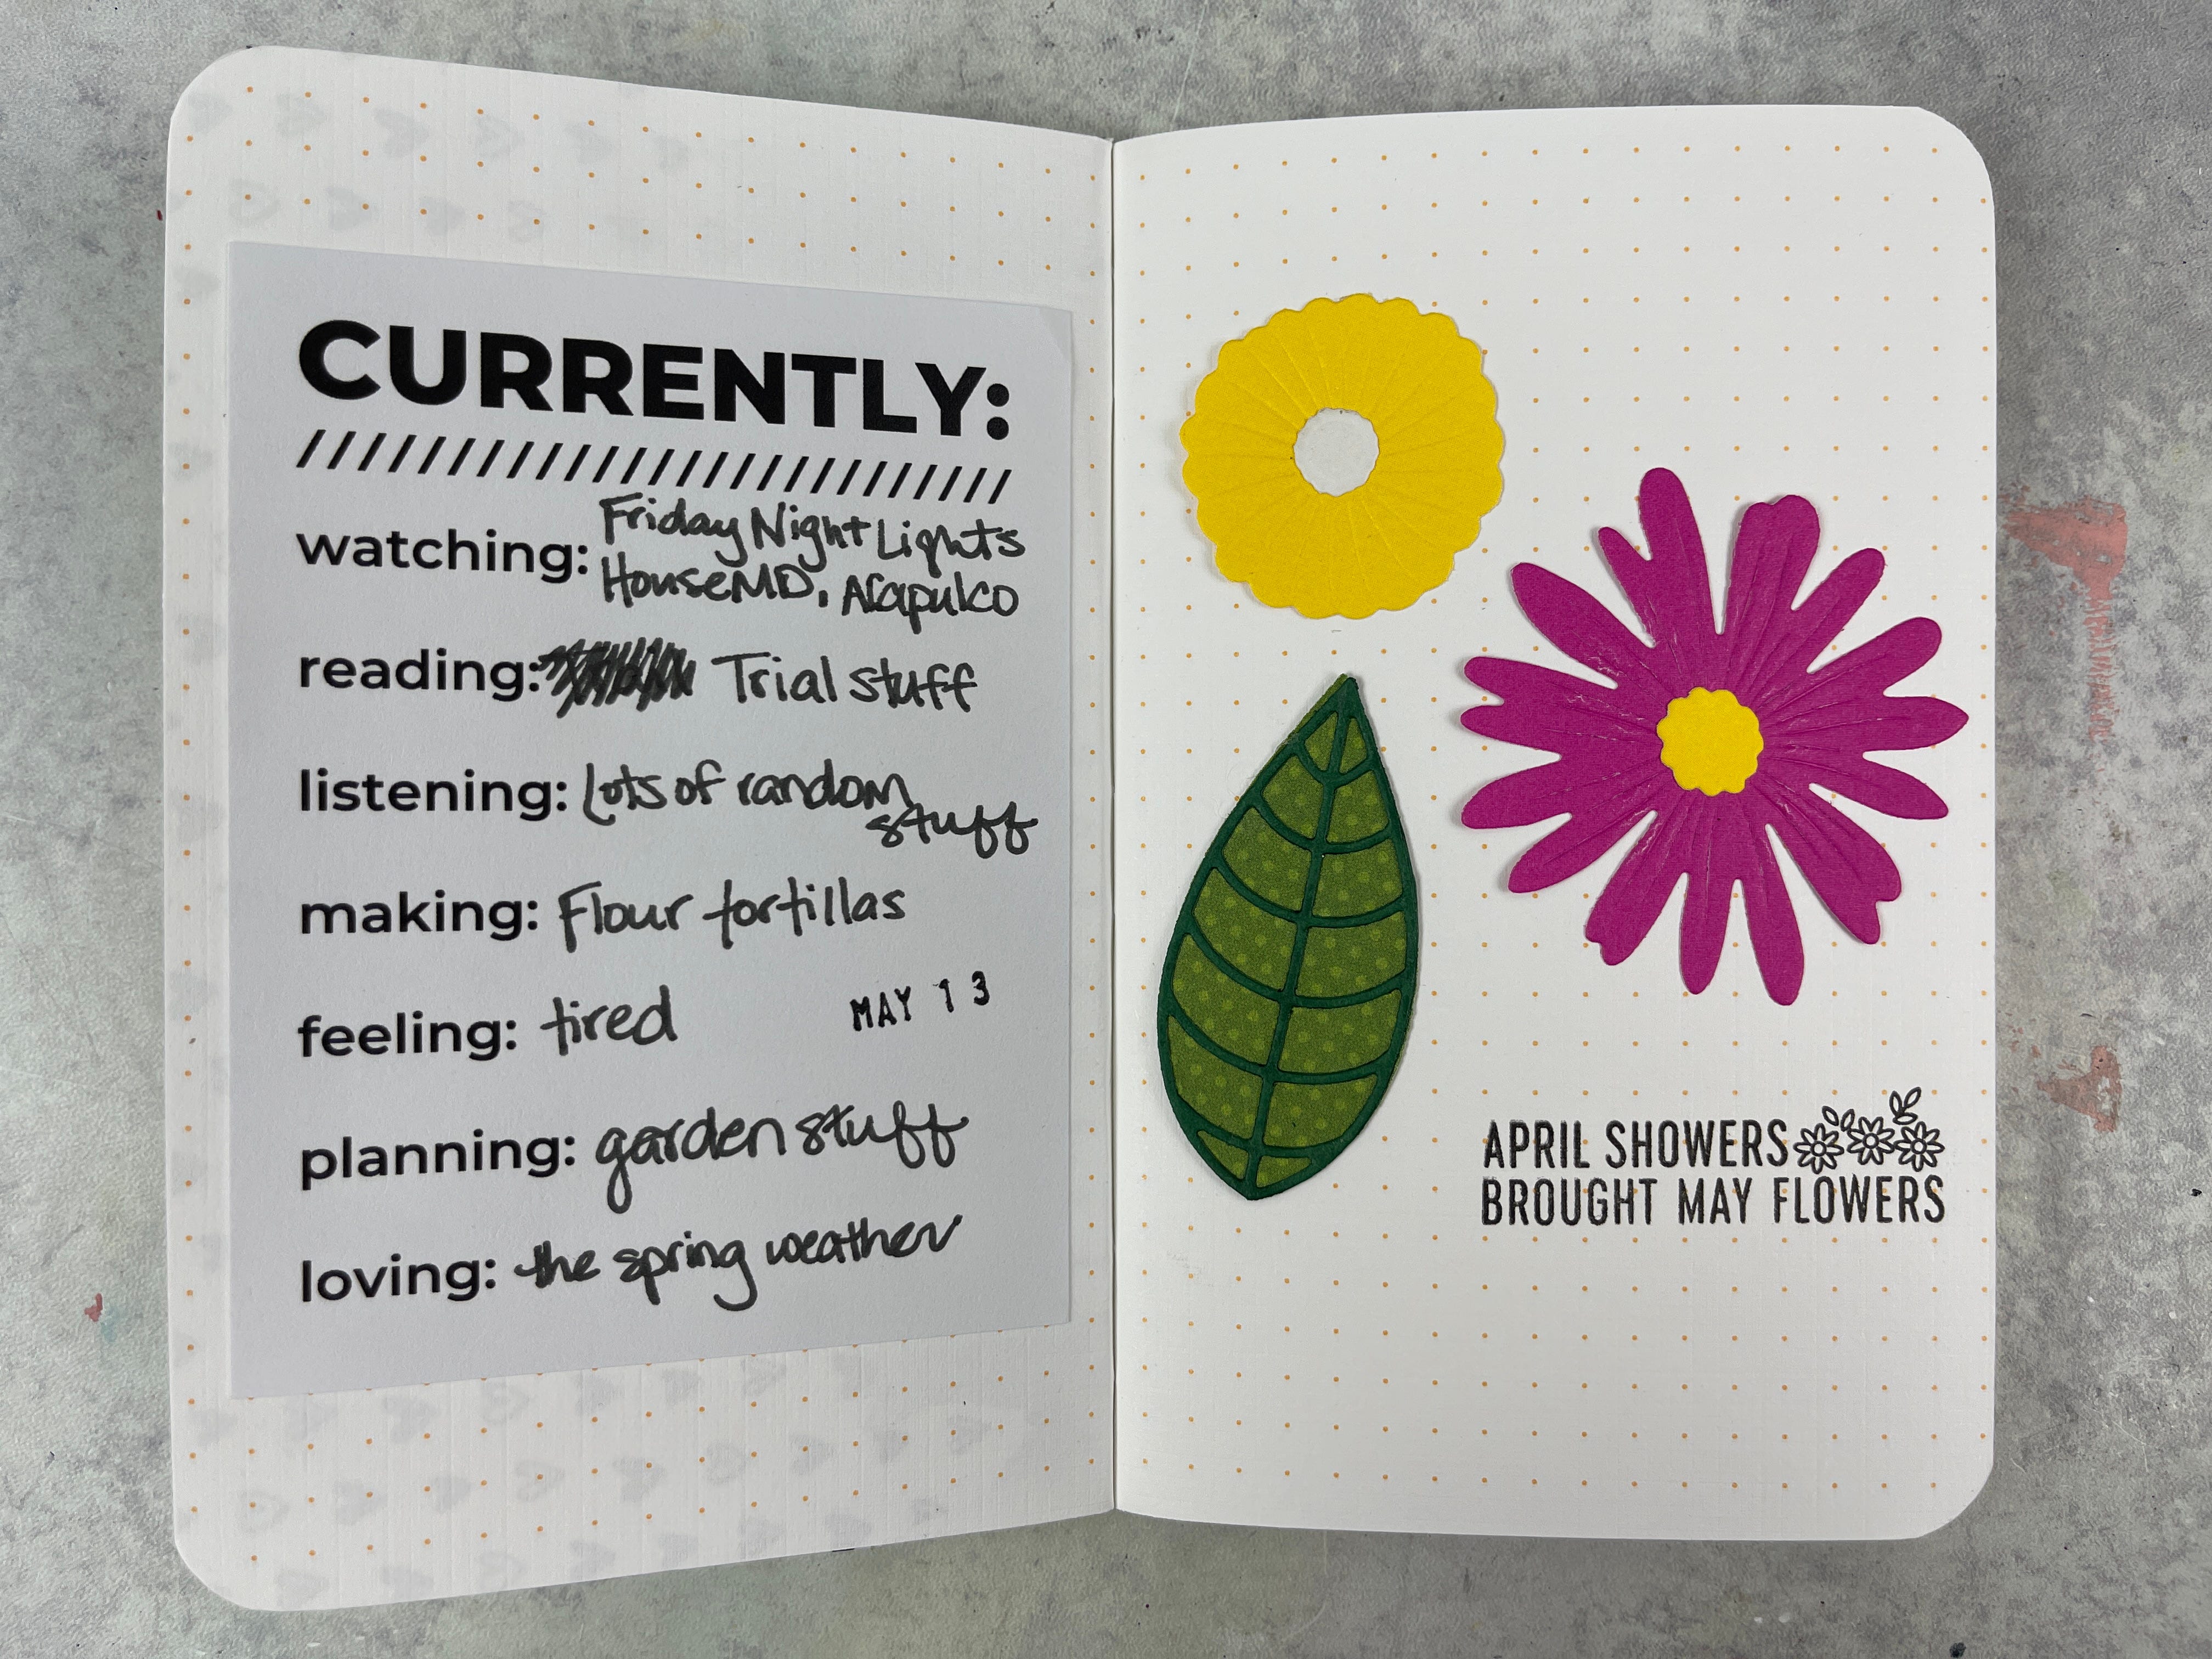 CURRENTLY:
watching: Friday Night Lights
House MD, Acapulco
reading: Trial stuff
listening: Lots of random
stuff
making: Flour tortillas
feeling: tired MAY 13
planning: garden stuff
loving: the spring weather
APRIL SHOWERS
BROUGHT MAY FLOWERS